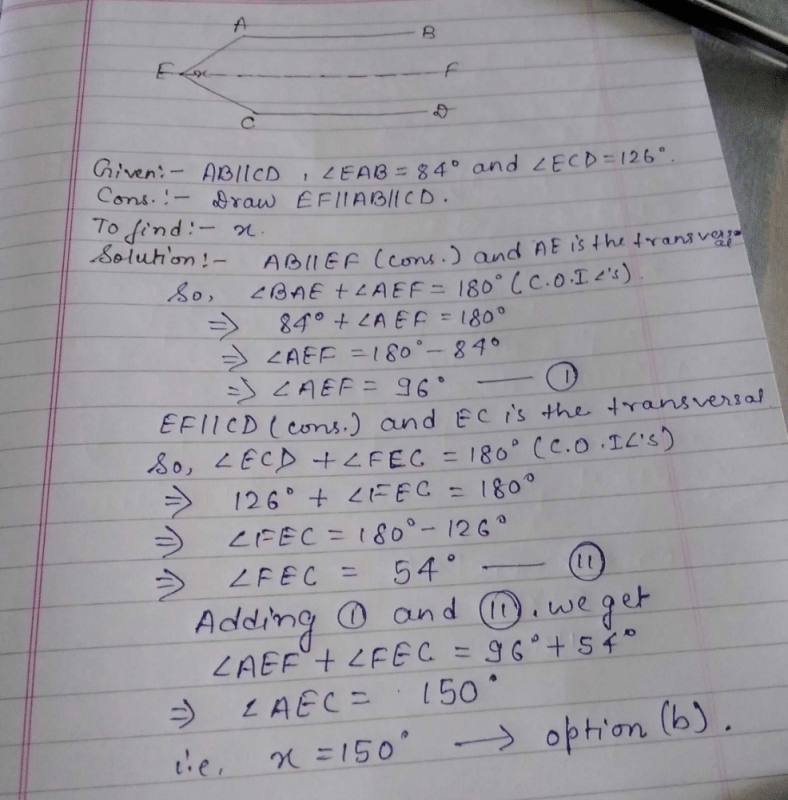 A B
E x F
C D
Given:- AB||CD , ∠EAB = 84° and ∠ECD = 126°.
Cons.:- Draw EF||AB||CD.
To find:- x.
Solution:- AB||EF (cons.) and AE is the transversal
So, ∠BAE + ∠AEF = 180° (C.O.I ∠'s).
⇒ 84° + ∠AEF = 180°
⇒ ∠AEF = 180° - 84°
⇒ ∠AEF = 96° — (I)
EF||CD (cons.) and EC is the transversal
So, ∠ECD + ∠FEC = 180° (C.O.I∠'s)
⇒ 126° + ∠FEC = 180°
⇒ ∠FEC = 180° - 126°
⇒ ∠FEC = 54° — (II)
Adding (I) and (II), we get
∠AEF + ∠FEC = 96° + 54°
⇒ ∠AEC = 150°
i.e. x = 150° → option (b).